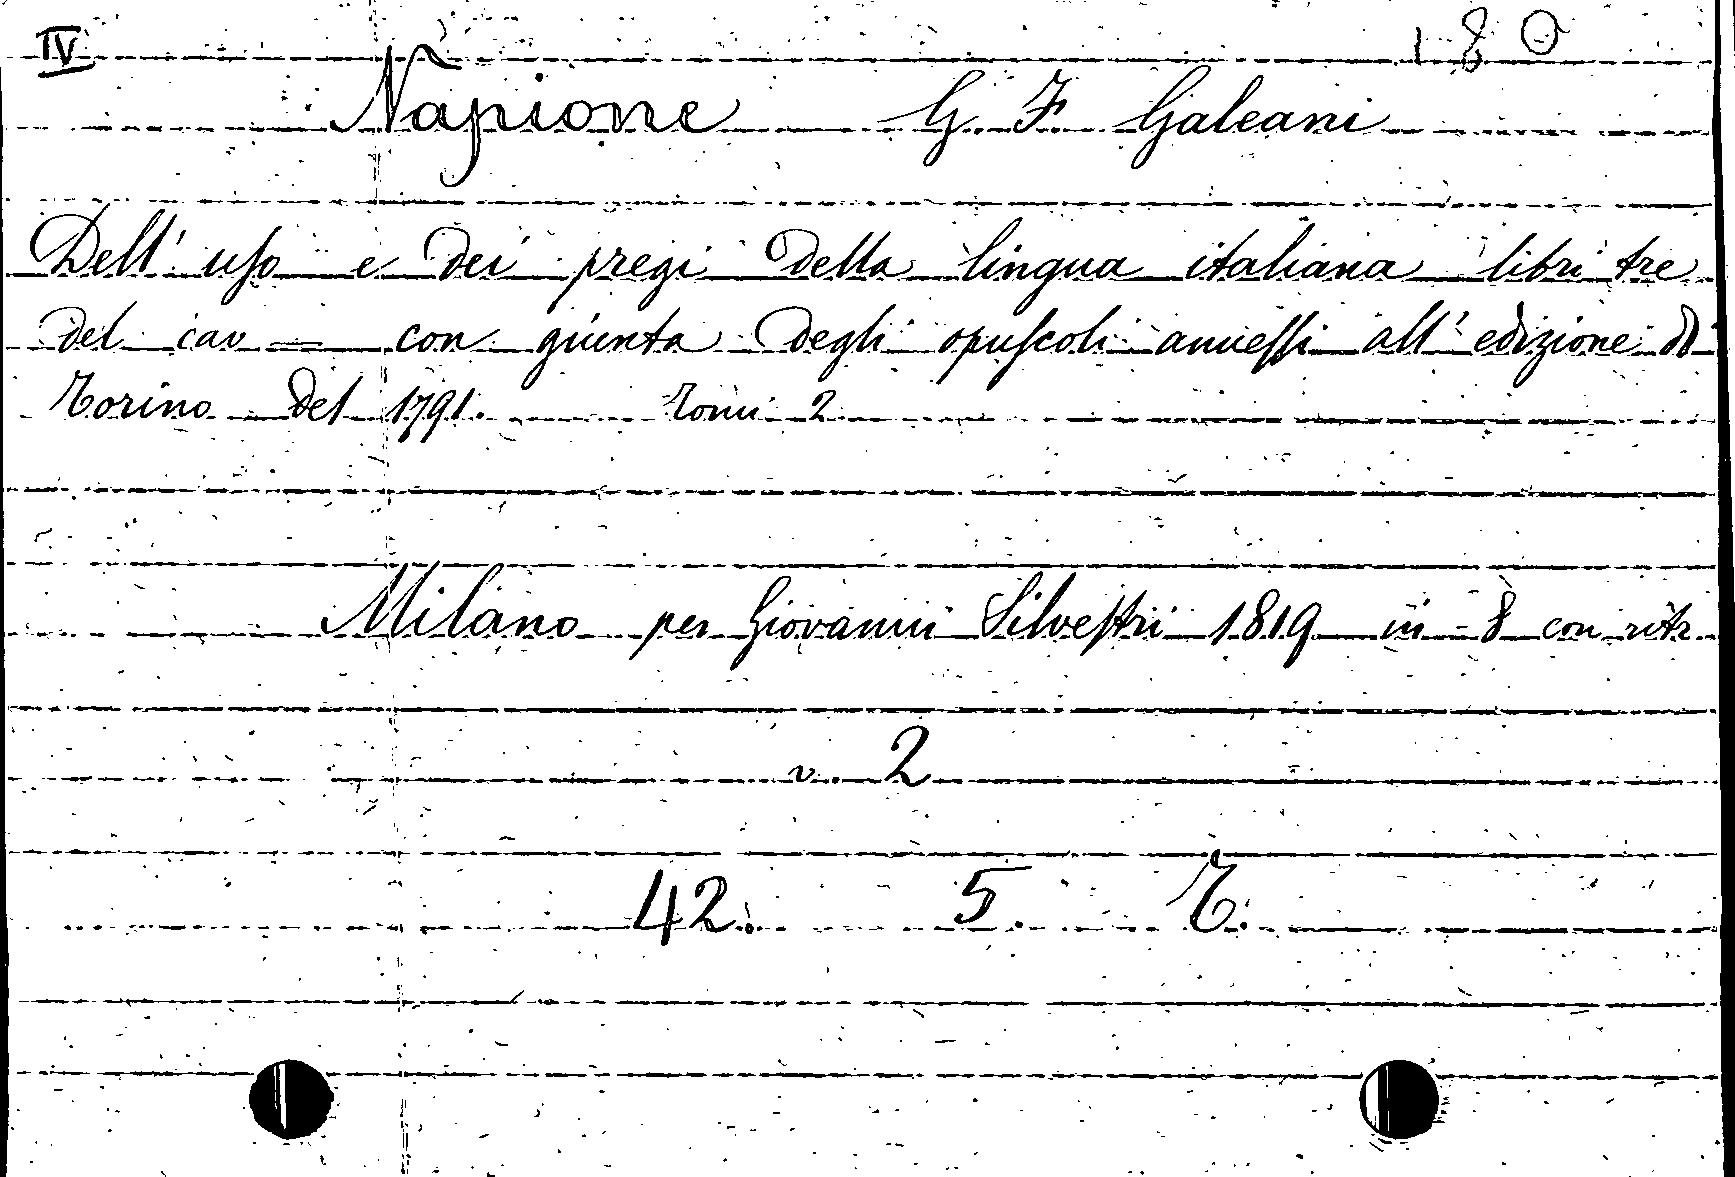 IV 180
Napione G. F. Galeani
Dell' uso e dei pregi della lingua italiana libri tre
del cav = con giunta degli opuscoli annessi all' edizione di
Torino del 1791. Tomi 2
Milano per Giovanni Silvestri 1819 in - 8 con ritr.
v. 2
42. 5. T.